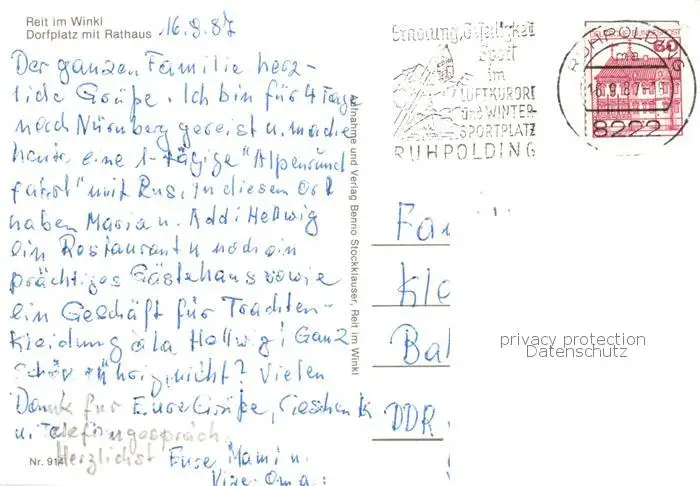 Reit im Winkl
Dorfplatz mit Rathaus
16.9.87
Der ganzen Familie herz-
liche Grüße. Ich bin für 4 Tage
nach Nürnberg gereist u. mache
heute eine 1-tägige "Alpenrund
fahrt" mit Bus, in diesem Ort
haben Maria u. Addi Hellwig
ein Restaurant u noch ein
prächtiges Gästehaus sowie
ein Geschäft für Trachten-
kleidung a la Hellwig! Ganz
schön rührig, nicht? Vielen
Dank für Eure Grüße, Geschenk
u. Telefongespräch.
Herzlichst Eure Mami u.
Oma
Nr. 914
Aufnahme und Verlag Benno Stockklauser, Reit im Winkl
Erholung, Geselligkeit
Sport
im
LUFTKURORT
und WINTER-
SPORTPLATZ
RUHPOLDING
RUHPOLDING
16.9.87
8222
60
Fa
Kl
Ba
DDR
privacy protection
Datenschutz